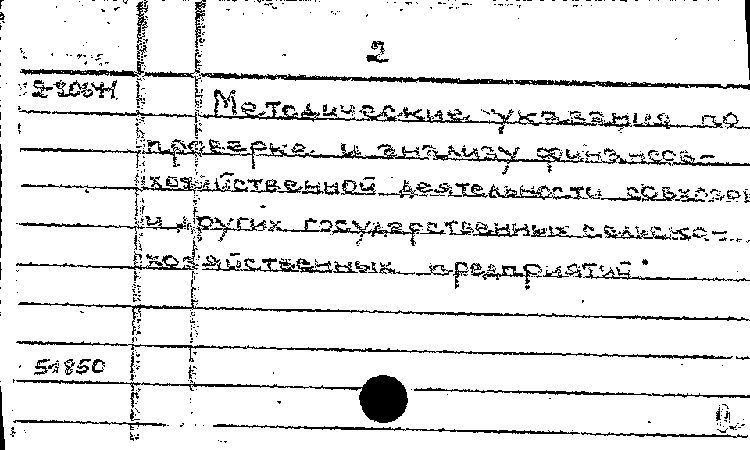 2
Методические указания по
проверке и анализу финансов-
хозяйственной деятельности совхозов
и других государственных сельско-
хозяйственных предприятий.
51850